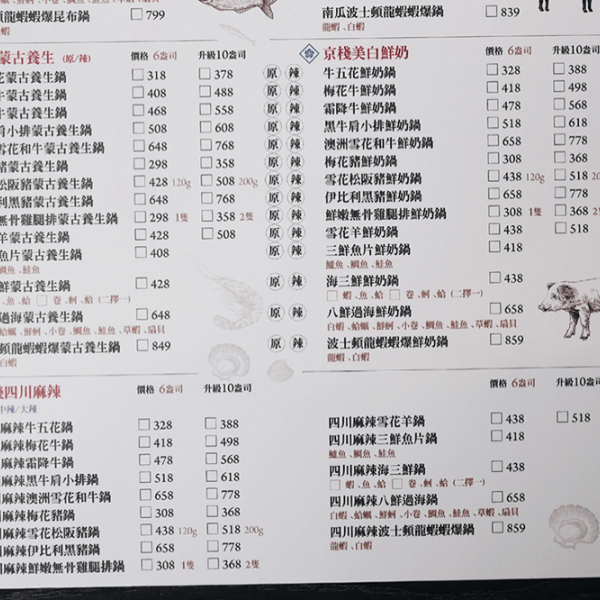 龍蝦蝦爆昆布鍋 □ 799
南瓜波士頓龍蝦蝦爆鍋 □ 839
龍蝦、白蝦
蒙古養生 (原/辣) 價格 6盎司 升級10盎司
花蒙古養生鍋 □ 318 □ 378
牛蒙古養生鍋 □ 408 □ 488
牛蒙古養生鍋 □ 468 □ 558
肩小排蒙古養生鍋 □ 508 □ 608
雪花和牛蒙古養生鍋 □ 648 □ 768
豬蒙古養生鍋 □ 298 □ 358
松阪豬蒙古養生鍋 □ 428 120g □ 508 200g
利黑豬蒙古養生鍋 □ 648 □ 768
無骨雞腿排蒙古養生鍋 □ 298 1隻 □ 358 2隻
羊蒙古養生鍋 □ 428 □ 508
魚片蒙古養生鍋 □ 408
鯛魚、鮭魚
鮮蒙古養生鍋 □ 428
、魚、蛤 □ 卷、蚵、蛤 (二擇一)
過海蒙古養生鍋 □ 648
、蛤蠣、鮮蚵、小卷、鯛魚、鮭魚、草蝦、扇貝
頓龍蝦蝦爆蒙古養生鍋 □ 849
、白蝦
京棧美白鮮奶 價格 6盎司 升級10盎司
原 辣 牛五花鮮奶鍋 □ 328 □ 388
原 辣 梅花牛鮮奶鍋 □ 418 □ 498
原 辣 霜降牛鮮奶鍋 □ 478 □ 568
原 辣 黑牛肩小排鮮奶鍋 □ 518 □ 618
原 辣 澳洲雪花和牛鮮奶鍋 □ 658 □ 778
原 辣 梅花豬鮮奶鍋 □ 308 □ 368
原 辣 雪花松阪豬鮮奶鍋 □ 438 120g □ 518
原 辣 伊比利黑豬鮮奶鍋 □ 658 □ 778
原 辣 鮮嫩無骨雞腿排鮮奶鍋 □ 308 1隻 □ 368
原 辣 雪花羊鮮奶鍋 □ 438 □ 518
原 辣 三鮮魚片鮮奶鍋 □ 418
鱸魚、鯛魚、鮭魚
原 辣 海三鮮鮮奶鍋 □ 438
□ 蝦、魚、蛤 □ 卷、蚵、蛤 (二擇一)
原 辣 八鮮過海鮮奶鍋 □ 658
白蝦、蛤蠣、鮮蚵、小卷、鯛魚、鮭魚、草蝦、扇貝
原 辣 波士頓龍蝦蝦爆鮮奶鍋 □ 859
龍蝦、白蝦
四川麻辣 價格 6盎司 升級10盎司
中辣/大辣
麻辣牛五花鍋 □ 328 □ 388
麻辣梅花牛鍋 □ 418 □ 498
麻辣霜降牛鍋 □ 478 □ 568
麻辣黑牛肩小排鍋 □ 518 □ 618
麻辣澳洲雪花和牛鍋 □ 658 □ 778
麻辣梅花豬鍋 □ 308 □ 368
麻辣雪花松阪豬鍋 □ 438 120g □ 518 200g
麻辣伊比利黑豬鍋 □ 658 □ 778
麻辣鮮嫩無骨雞腿排鍋 □ 308 1隻 □ 368 2隻
價格 6盎司 升級10盎司
四川麻辣雪花羊鍋 □ 438 □ 518
四川麻辣三鮮魚片鍋 □ 418
鱸魚、鯛魚、鮭魚
四川麻辣海三鮮鍋 □ 438
□ 蝦、魚、蛤 □ 卷、蚵、蛤 (二擇一)
四川麻辣八鮮過海鍋 □ 658
白蝦、蛤蠣、鮮蚵、小卷、鯛魚、鮭魚、草蝦、扇貝
四川麻辣波士頓龍蝦蝦爆鍋 □ 859
龍蝦、白蝦